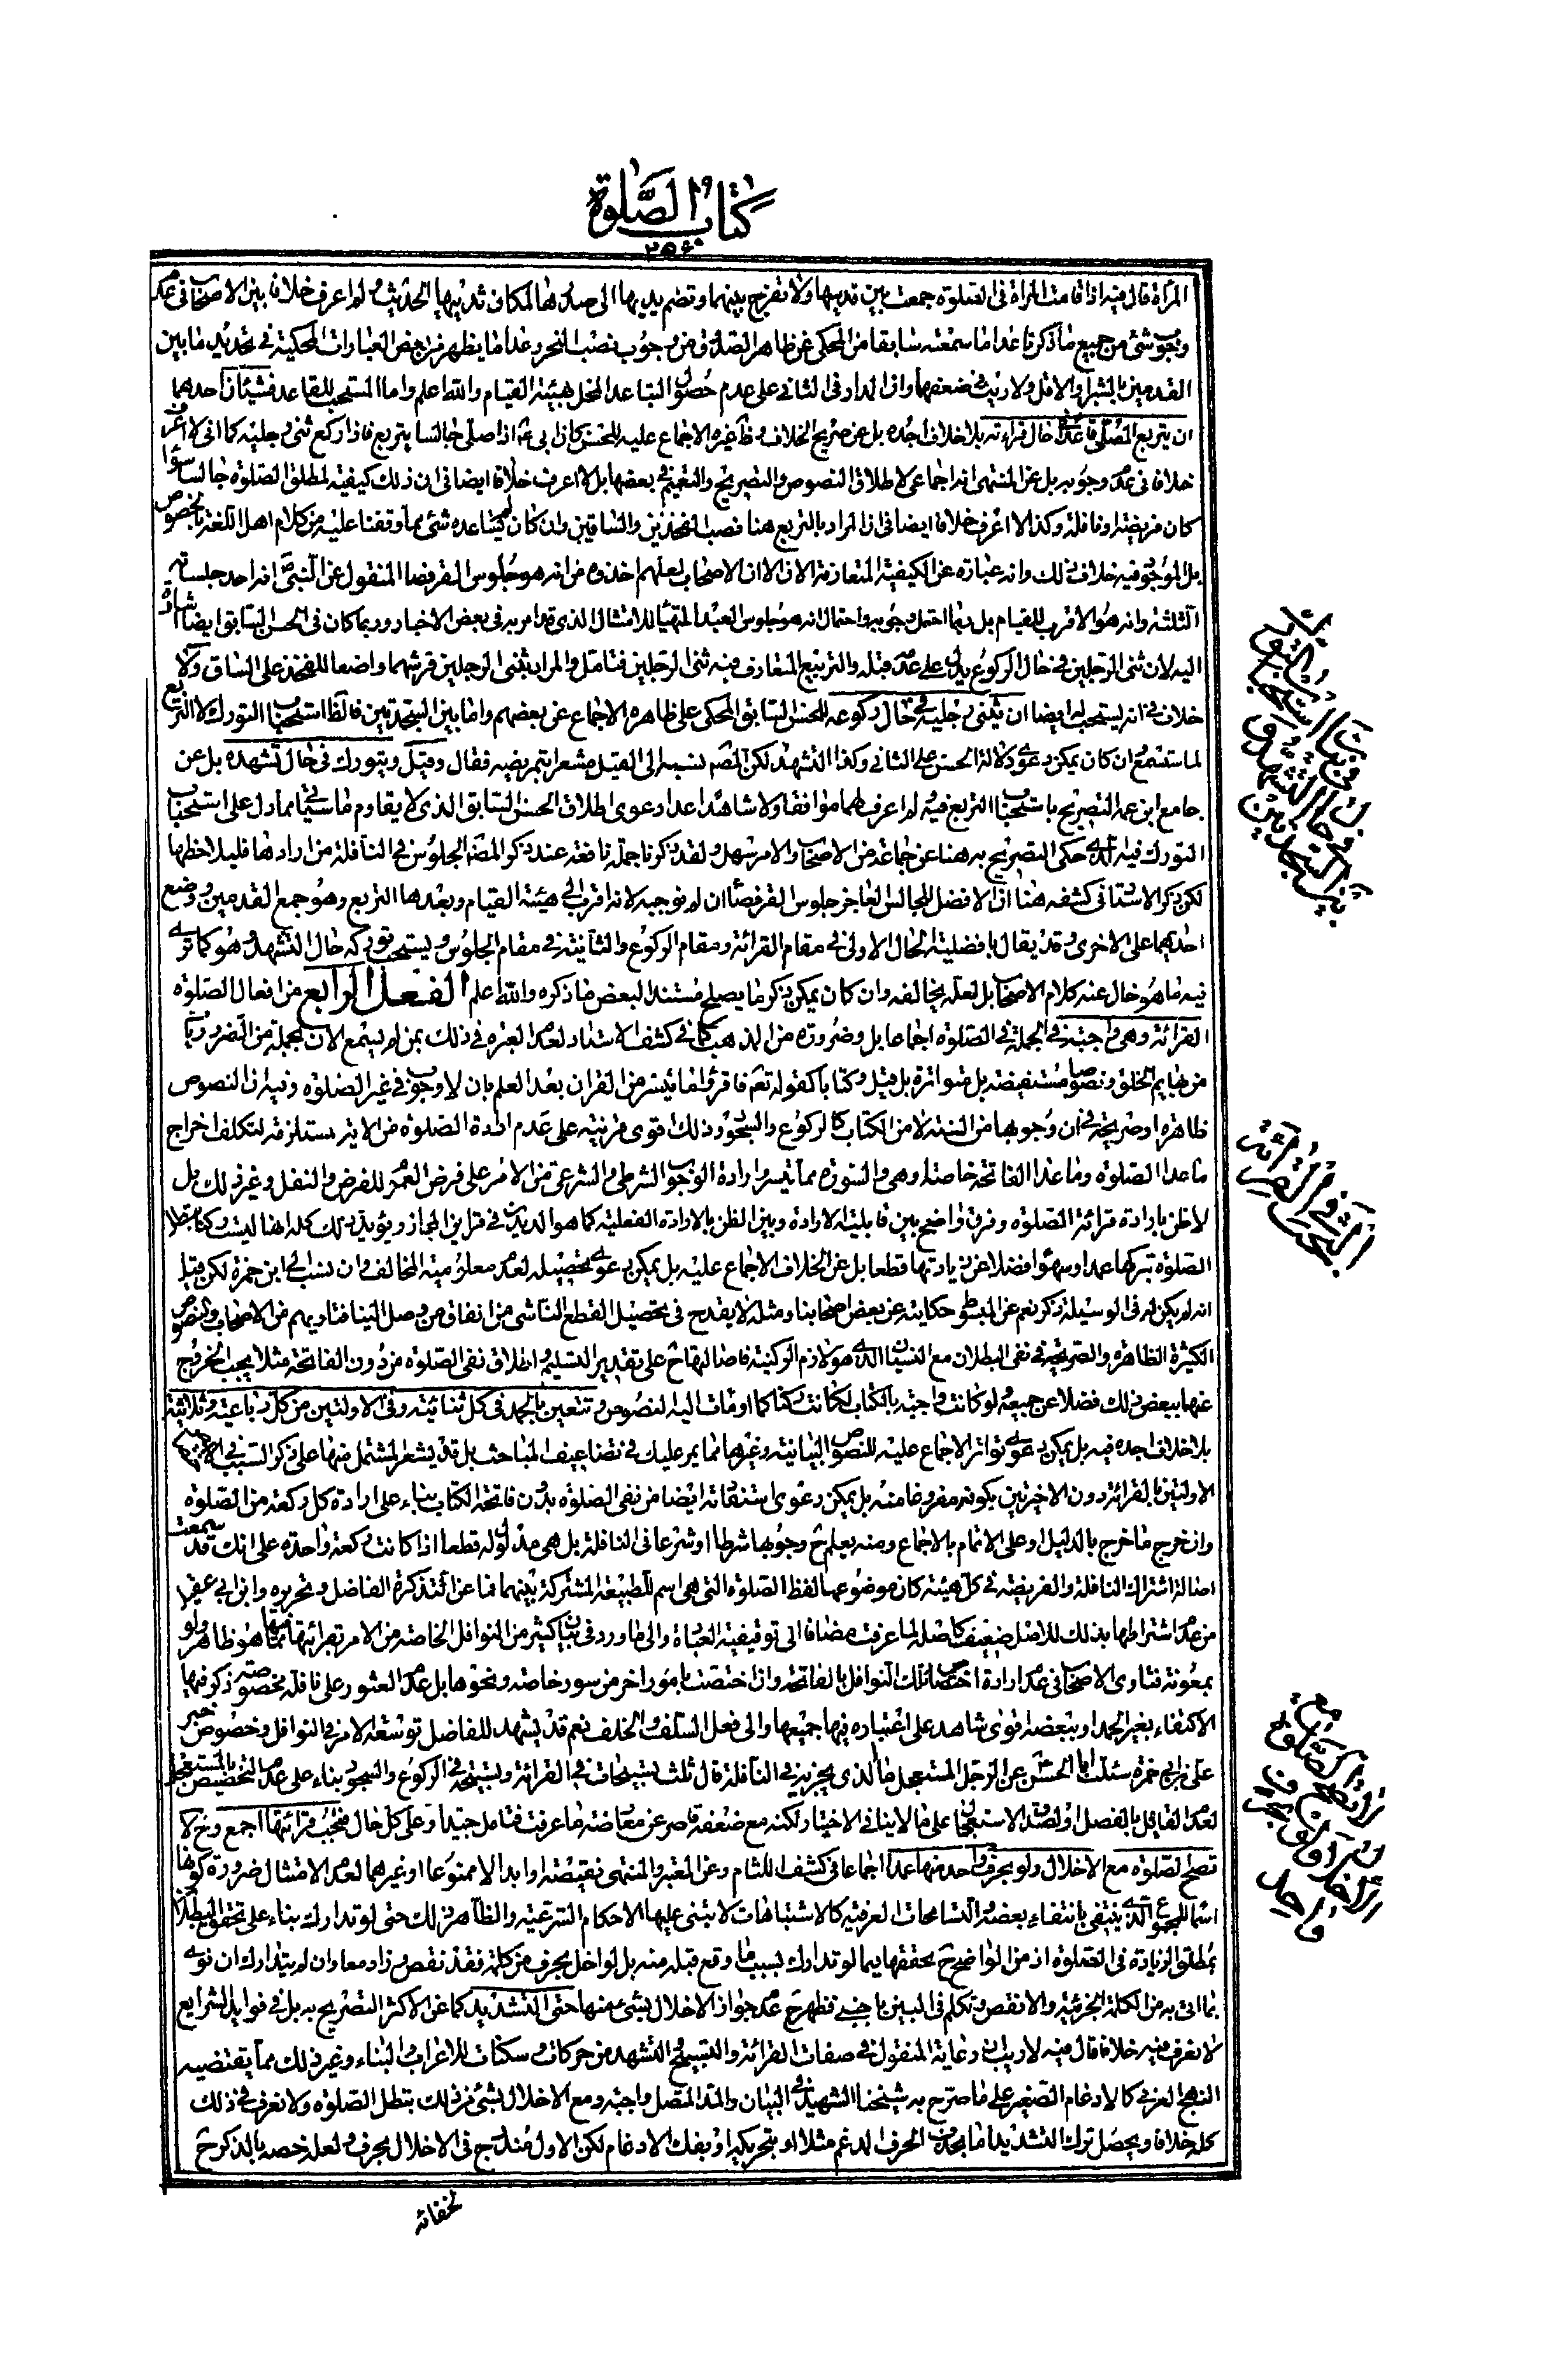 كتاب الصلوة
٢٥٤
المرأة قال فيه اذا قامت المرأة في الصلوة جمعت بين قدميها ولا تفرج بينهما وتضم يديها الى صدرها لمكان ثدييها الحديث ولم اعرف خلافا بين الاصحاب في عدم
وجوب شئ من جميع ما ذكرنا عدا ما سمعته سابقا من المحكى عن ظاهر الصدوق من وجوب نصب النحر وعدا ما يظهر من بعض العبارات المحكية في تحديد ما بين
القدمين بالشبر او الاقل ولا ريب في ضعفهما وان المدار في الثاني على عدم حصول التباعد المخل بهيئة القيام والله اعلم واما المستحب للقاعد فشيئان احدهما
ان يتربع المصلى قاعدا في حال قرائته بلا خلاف اجده بل عن صريح الخلاف وظ غيره الاجماع عليه للحسن كان ابي ع اذا صلى جالسا يتربع فاذا ركع ثنى رجليه كما انى لا اعرف
خلافا في عدم وجوبه بل عن المنتهى انه اجماعى لاطلاق النصوص والتصريح والتعميم في بعضها بل لا اعرف خلافا ايضا في ان ذلك كيفية لمطلق الصلوة جالسا سواء
كان فريضة او نافلة وكذا لا اعرف خلافا ايضا في ان المراد بالتربع هنا نصب الفخذين والساقين وان كان لم يساعده شئ مما وقفنا عليه من كلام اهل اللغة بالخصوص
بل الموجود فيه خلاف ذلك وانه عبارة عن الكيفية المتعارفة الان الا ان الاصحاب لعلهم اخذوه من انه هو جلوس القرفصا المنقول عن النبي ص انه احد جلساته
الثلثة وانه هو الاقرب للقيام بل ربما احتمل وجوبه واحتمال انه هو جلوس العبد المتهيأ للامتثال الذى قد امر به في بعض الاخبار وربما كان في الحسن السابق ايضا اشارة
اليه لان ثنى الرجلين في حال الركوع يدل على عدمه قبله والتربيع المتعارف فيه ثنى الرجلين فتامل والمراد بثنى الرجلين فرشهما واضعا للفخذ على الساق ولا
خلاف في انه يستحب له ايضا ان يثنى رجليه في حال ركوعه للحسن السابق المحكى على ظاهره الاجماع عن بعضهم واما بين السجدتين فالظ استحباب التورك لا التربع
لما ستسمع ان كان يمكن دعوى دلالة الحسن على الثاني وكذا التشهد لكن المصم نسبه الى القيل مشعرا بتمريضه فقال وقيل ويتورك في حال تشهده بل عن
جامع ابن عمه التصريح باستحباب التربع فيه ولم اعرف لهما موافقا ولا شاهدا عدا دعوى اطلاق الحسن السابق الذى لا يقاوم ما سيأتي مما دل على استحباب
التورك فيه الذى حكى التصريح به هنا عن جماعة من الاصحاب والامر سهل ولقد ذكرنا جملة نافعة عند ذكر المصنف الجلوس في النافلة من ارادها فليلاحظها
لكن ذكر الاستاد في كشفه هنا ان الافضل لمجالس العاجز جلوس القرفصا ان لم نوجبه لانه اقرب الى هيئة القيام وبعدها التربع وهو جمع القدمين ووضع
احديهما على الاخرى وقد يقال بافضلية الحال الاولى في مقام القرائة ومقام الركوع والثانية في مقام الجلوس ويستحب توركه حال التشهد وهو كما ترى
فيه ما هو خال عنه كلام الاصحاب بل لعله يخالفه وان كان يمكن ذكر ما يصلح مستندا لبعض ما ذكره والله اعلم الفعل الرابع من افعال الصلوة
القرائة وهى واجبة في الجملة في الصلوة اجماعا بل وضرورة من المذهب كما في كشف الاستاد لعدم العبرة في ذلك بمن لم يسمع الان بجملة من الضروريات
من بهايم الخلق ونصوصا مستفيضة بل متواترة بل قيل وكتابا كقوله تعم فاقرؤا ما تيسر من القران بعد العلم بان لا وجوب في غير الصلوة وفيه ان النصوص
ظاهرة او صريحة في ان وجوبها من السنة لا من الكتاب كالركوع والسجود وذلك اقوى قرينة على عدم ارادة الصلوة من الاية المستلزمة لتكلف اخراج
ما عدا الصلوة وما عدا الفاتحة خاصة او هى والسورة مما تيسر وارادة الوجوب الشرطى والشرعى من الامر على فرض العموم للفرض والنفل وغير ذلك بل
لا ظن بارادة قرائة الصلوة وفرق واضح بين قابلية الارادة وبين الظن بالارادة الفعلية كما هو المدار في قراين المجاز ويؤيد ذلك كله انها ليست ركنا تبطل
الصلوة بتركها عمدا وسهوا فضلا عن زيادتها قطعا بل عن الخلاف الاجماع عليه بل يمكن دعوى تحصيله لعدم معلومية المخالف وان نسب الى ابن حمزة لكن قيل
انه لم يكن له في الوسيلة ذكر نعم عن المبسوط حكايته عن بعض اصحابنا ومثله لا يقدح في تحصيل القطع الناشى من اتفاق من وصل الينا فتاويهم من الاصحاب والنصوص
الكثيرة الظاهرة والصريحة في نفى البطلان مع النسيان الذى هو لازم الركنية فاصالتها ح على تقدير التسليم واطلاق نفى الصلوة من دون الفاتحة مثلا يجب الخروج
عنها ببعض ذلك فضلا عن جميعه ولو كانت واجبة بالكتاب لكانت ركنا كما اومات اليه النصوص وتتعين بالحمد في كل ثنائية وفى الاولتين من كل رباعية وثلاثية
بلا خلاف اجده فيه بل يمكن دعوى تواتر الاجماع عليه للنصوص البيانية وغيرها مما يمر عليك في تضاعيف المباحث بل قد يشعر المشتمل منها على ذكر السبب في
الاولتين بالقرائة دون الاخيرتين بكونه مفروغا منه بل يمكن دعوى استفادته ايضا من نفى الصلوة بدون فاتحة الكتاب بناء على ارادة كل ركعة من الصلوة
وان خرج ما خرج بالدليل او على الاتمام بالاجماع ومنه يعلم ح وجوبها شرطا او شرعا في النافلة بل هى مدلوله قطعا اذا كانت ركعة واحدة على انك قد سمعت
اصالة اشتراك النافلة والفريضة في كل هيئة كان موضوعها لفظ الصلوة التى هى اسم للطبيعة المشتركة بينهما فما عن التذكرة الفاضل وتحريره وابن ابي عقيل
من عدم اشتراطها بذلك للاصل ضعيف كاصله لما عرفت مضافا الى توقيفية العبادة والى ما ورد في بيان كثير من النوافل الخاصة من الامر بقرائتها فيها مما هو ظاهر ولو
بمعونة فتاوى الاصحاب في عدم ارادة اختصاص تلك النوافل بالفاتحة وان اختصت بامور اخر من سور خاصة ونحوها بل عدم العثور على نافلة بخصوصه ذكر فيها
الاكتفاء بغير الحمد او ببعضه اقوى شاهد على اعتباره فيها جميعها والى فعل السلف والخلف نعم قد يشهد للفاضل توسعة الامر في النوافل وخصوص خبر
على بن ابي حمزة سئلت ابا الحسن ع عن الرجل المستعجل ما الذى يجزيه في النافلة قال ثلث تسبيحات في القرائة وتسبيحة في الركوع والسجود بناء على عدم التخصيص بالمستعجل
لعدم القائل بالفصل ولصدق الاستعجال على ما لا ينافي الاختيار ولكنه مع ضعفه قاصر عن معارضته ما عرفت فتامل جيدا وعلى كل حال فتجب قرائتها اجمع وح لا
تصح الصلوة مع الاخلال ولو بحرف واحد منها عمدا اجماعا في كشف اللثام وعن المعتبر والمنتهى نقيصته او ابدالا ممنوعا او غيرهما لعدم الامتثال ضرورة كونها
اسما للمجموع الذى ينتفى بانتفاء بعضه والتسامحات العرفية كالاشتباهات لا تبتنى عليها الاحكام الشرعية والظاهر ذلك حتى لو تدارك بناء على تحقق البطلان
بمطلق الزيادة في الصلوة اذ من الواضح ح تحققها بما لو تدارك بسبب ما وقع قبله منه بل لو اخل بحرف من كلمة فقد نقص وزاد معا وان لم يتدارك ان نوى
بما اتى به من الكلمة الجزئية والا نقص وتكلم في البين باجنبى فظهر ح عدم جواز الاخلال بشئ منها حتى التشديد كما عن الاكثر التصريح به بل في فوايد الشرايع
لا نعرف فيه خلافا قال فيه لا ريب في رعاية المنقول في صفات القرائة والتسبيح والتشهد من حركات وسكنات للاعراب والبناء وغير ذلك مما يقتضيه
النهج العربي كالادغام الصغير على ما صرح به شيخنا الشهيد في البيان والمد المتصل واجبة ومع الاخلال بشئ من ذلك تبطل الصلوة ولا نعرف في ذلك
كله خلافا ويحصل ترك التشديد اما بحذف الحرف المدغم مثلا او بتحريكه او بفك الادغام لكن الاول مندرج في الاخلال بحرف ولعله خصه بالذكر ح
لخفائه
البحث في القرائة